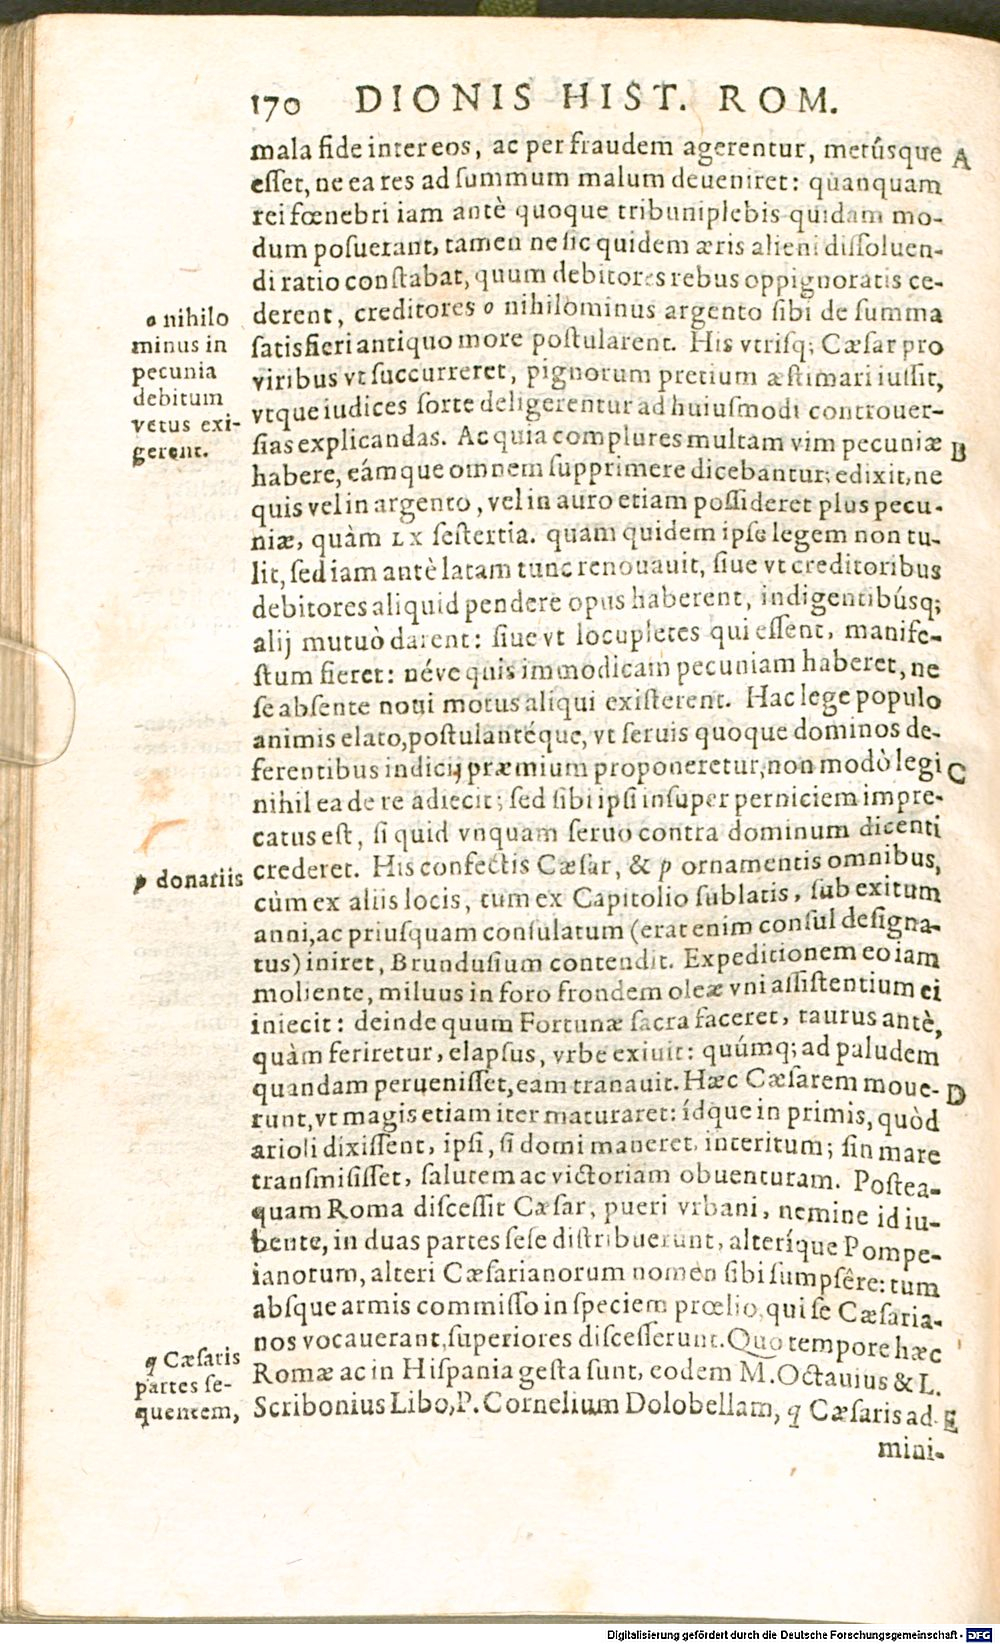 170 DIONIS HIST. ROM.
mala fide inter eos, ac per fraudem agerentur, metûsque A
eſſet, ne ea res ad ſummum malum deueniret: quanquam
rei fœnebri iam antè quoque tribuni plebis quidam mo-
dum poſuerant, tamen ne ſic quidem æris alieni diſſoluen-
di ratio conſtabat, quum debitores rebus oppignoratis ce-
derent, creditores o nihilominus argento ſibi de ſumma
ſatisfieri antiquo more poſtularent. His vtriſq; Cæſar pro
viribus vt ſuccurreret, pignorum pretium æſtimari iuſſit,
vtque iudices ſorte deligerentur ad huiuſmodi controuer-
ſias explicandas. Ac quia complures multam vim pecuniæ B
habere, eámque omnem ſupprimere dicebantur: edixit, ne
quis vel in argento, vel in auro etiam poſſideret plus pecu-
niæ, quàm LX ſeſtertia. quam quidem ipſe legem non tu-
lit, ſed iam antè latam tunc renouauit, ſiue vt creditoribus
debitores aliquid pendere opus haberent, indigentibúsq;
alij mutuò darent: ſiue vt locupletes qui eſſent, manife-
ſtum fieret: néve quis immodicam pecuniam haberet, ne
ſe abſente noui motus aliqui exiſterent. Hac lege populo
animis elato, poſtulantéque, vt ſeruis quoque dominos de-
ferentibus indicij præmium proponeretur, non modò legi C
nihil ea de re adiecit; ſed ſibi ipſi inſuper perniciem impre-
catus eſt, ſi quid vnquam ſeruo contra dominum dicenti
crederet. His confectis Cæſar, & p ornamentis omnibus,
cùm ex aliis locis, tum ex Capitolio ſublatis, ſub exitum
anni, ac priuſquam conſulatum (erat enim conſul deſigna-
tus) iniret, Brunduſium contendit. Expeditionem eo iam
moliente, miluus in foro frondem oleæ vni aſſiſtentium ei
iniecit: deinde quum Fortunæ ſacra faceret, taurus antè,
quàm feriretur, elapſus, vrbe exiuit: quúmq; ad paludem
quandam perueniſſet, eam tranauit. Hæc Cæſarem moue- D
runt, vt magis etiam iter maturaret: ídque in primis, quòd
arioli dixiſſent, ipſi, ſi domi maneret, interitum; ſin mare
tranſmiſiſſet, ſalutem ac victoriam obuenturam. Poſtea-
quam Roma diſceſſit Cæſar, pueri vrbani, nemine id iu-
bente, in duas partes ſeſe diſtribuerunt, alteríque Pompe-
ianorum, alteri Cæſarianorum nomen ſibi ſumpſêre: tum
abſque armis commiſſo in ſpeciem prœlio, qui ſe Cæſaria-
nos vocauerant, ſuperiores diſceſſerunt. Quo tempore hæc
Romæ ac in Hiſpania geſta ſunt, eodem M. Octauius & L.
Scribonius Libo, P. Cornelium Dolobellam, q Cæſaris ad- E
mini-
o nihilo
minus in
pecunia
debitum
vetus exi-
gerent.
p donariis
q Cæſaris
partes ſe-
quentem,
Digitalisierung gefördert durch die Deutsche Forschungsgemeinschaft - DFG